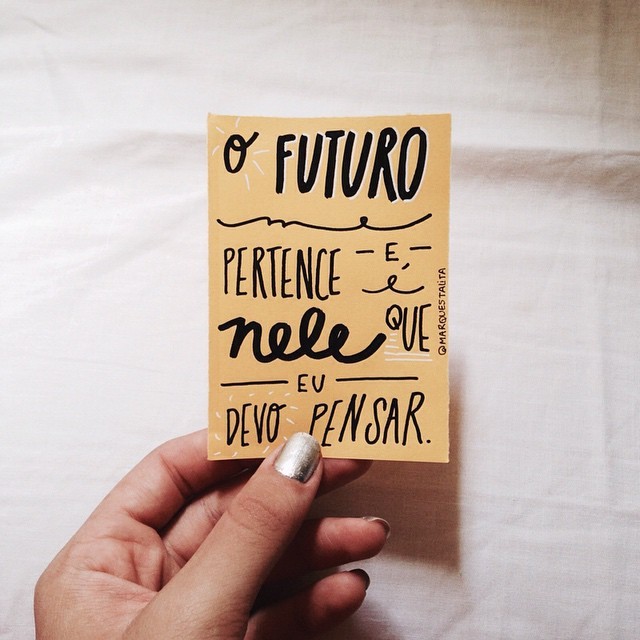 O FUTURO
me
PERTENCE - E -
é
nele QUE
EU
DEVO PENSAR.
@MARQUESTALITA